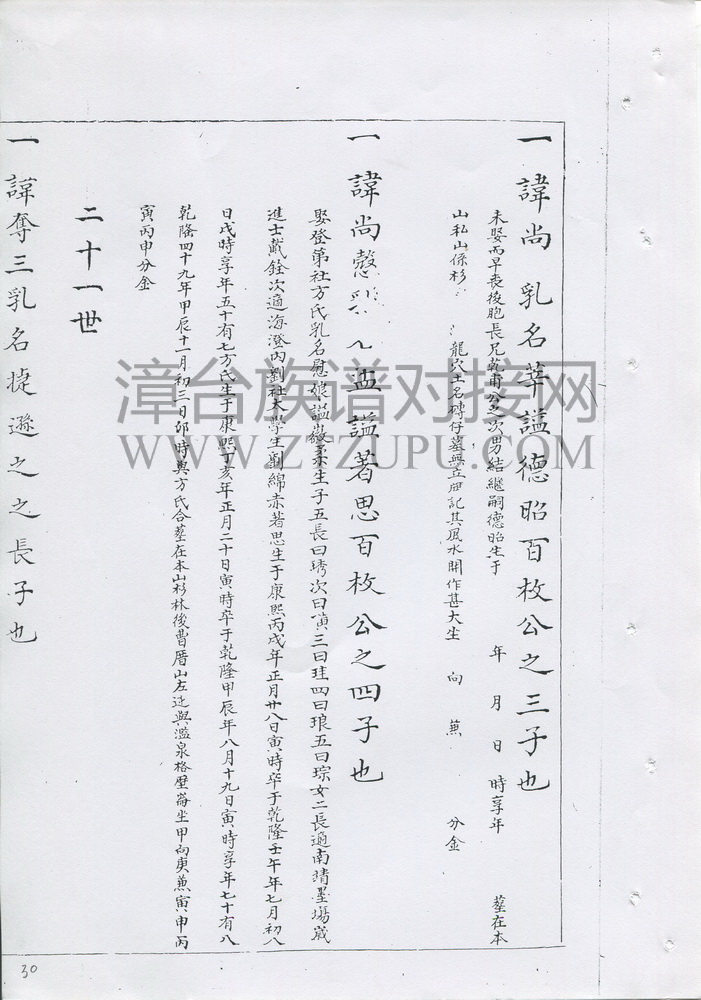 一 諱尚 乳名莘謚德昭百枚公之三子也
未娶而早喪後胞長兄 甫公之次男結繼嗣德昭生于 年 月 日 時享年 墓在本
山私山係杉 龍穴土名磚仔墓無立 記其風水開作甚大坐 向 兼 分金
一 諱尚慤 謚著思百枚公之四子也
娶登第社方氏乳名慰娘謚 生子五長曰琇次曰 三曰珪四曰琅五曰琮女二長適南靖墨場歲
進士戴銓次適海澄內劉社太學生劉綿赤著思生于康熙丙戌年正月廿八日寅時卒于乾隆壬午年七月初八
日戌時享年五十有七方氏生于康熙丁亥年正月二十日寅時卒于乾隆甲辰年八月十九日寅時享年七十有八
乾隆四十九年甲辰十一月初三日卯時與方氏合墓在本山杉林後曹厝山左近與濫泉格壁崙坐甲向庚兼寅申丙
寅丙申分金
二十一世
一 諱奪三乳名捷遜之之長子也
30
漳台族谱对接网
WWW.ZTZUPU.COM